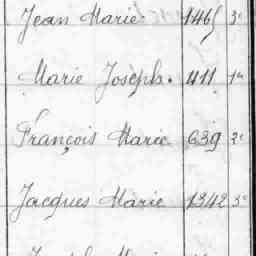 Jean Marie 1465 3e
Marie Joseph. 411 1re
François Marie 639 2e
Jacques Marie 1342 3e